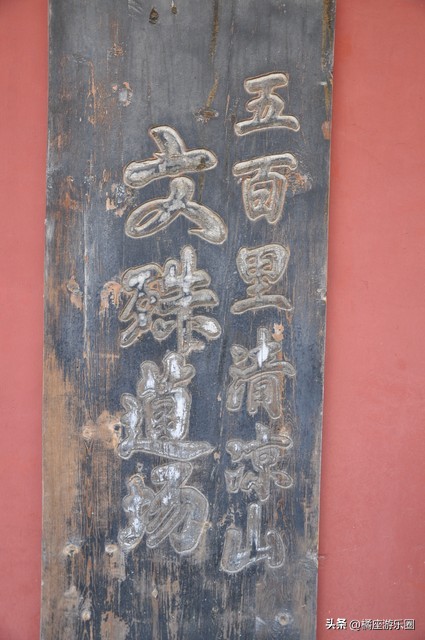 五百里清凉山
文殊道场
头条 @橘座游乐圈